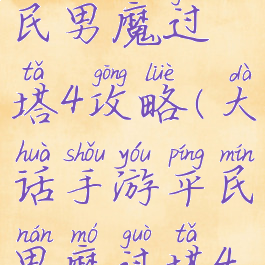 民男魔过
tǎ gōng lüè dà
塔4攻略(大
huà shǒu yóu píng mín
话手游平民
nán mó guò tǎ
男魔过塔4